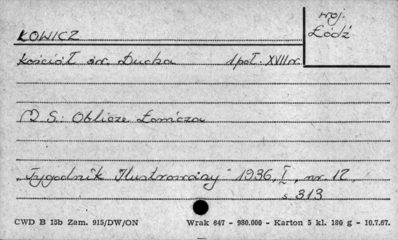 woj.
Łódź
ŁOWICZ
Kościół św. Ducha 1 poł. XVII w.
M. S.: Oblicze Łowicza
"Tygodnik Ilustrowany" 1936, I, nr. 17,
s. 313
CWD B 15b Zam. 915/DW/ON Wrak 647 - 980.000 - Karton 5 kl. 180 g - 10.7.67.